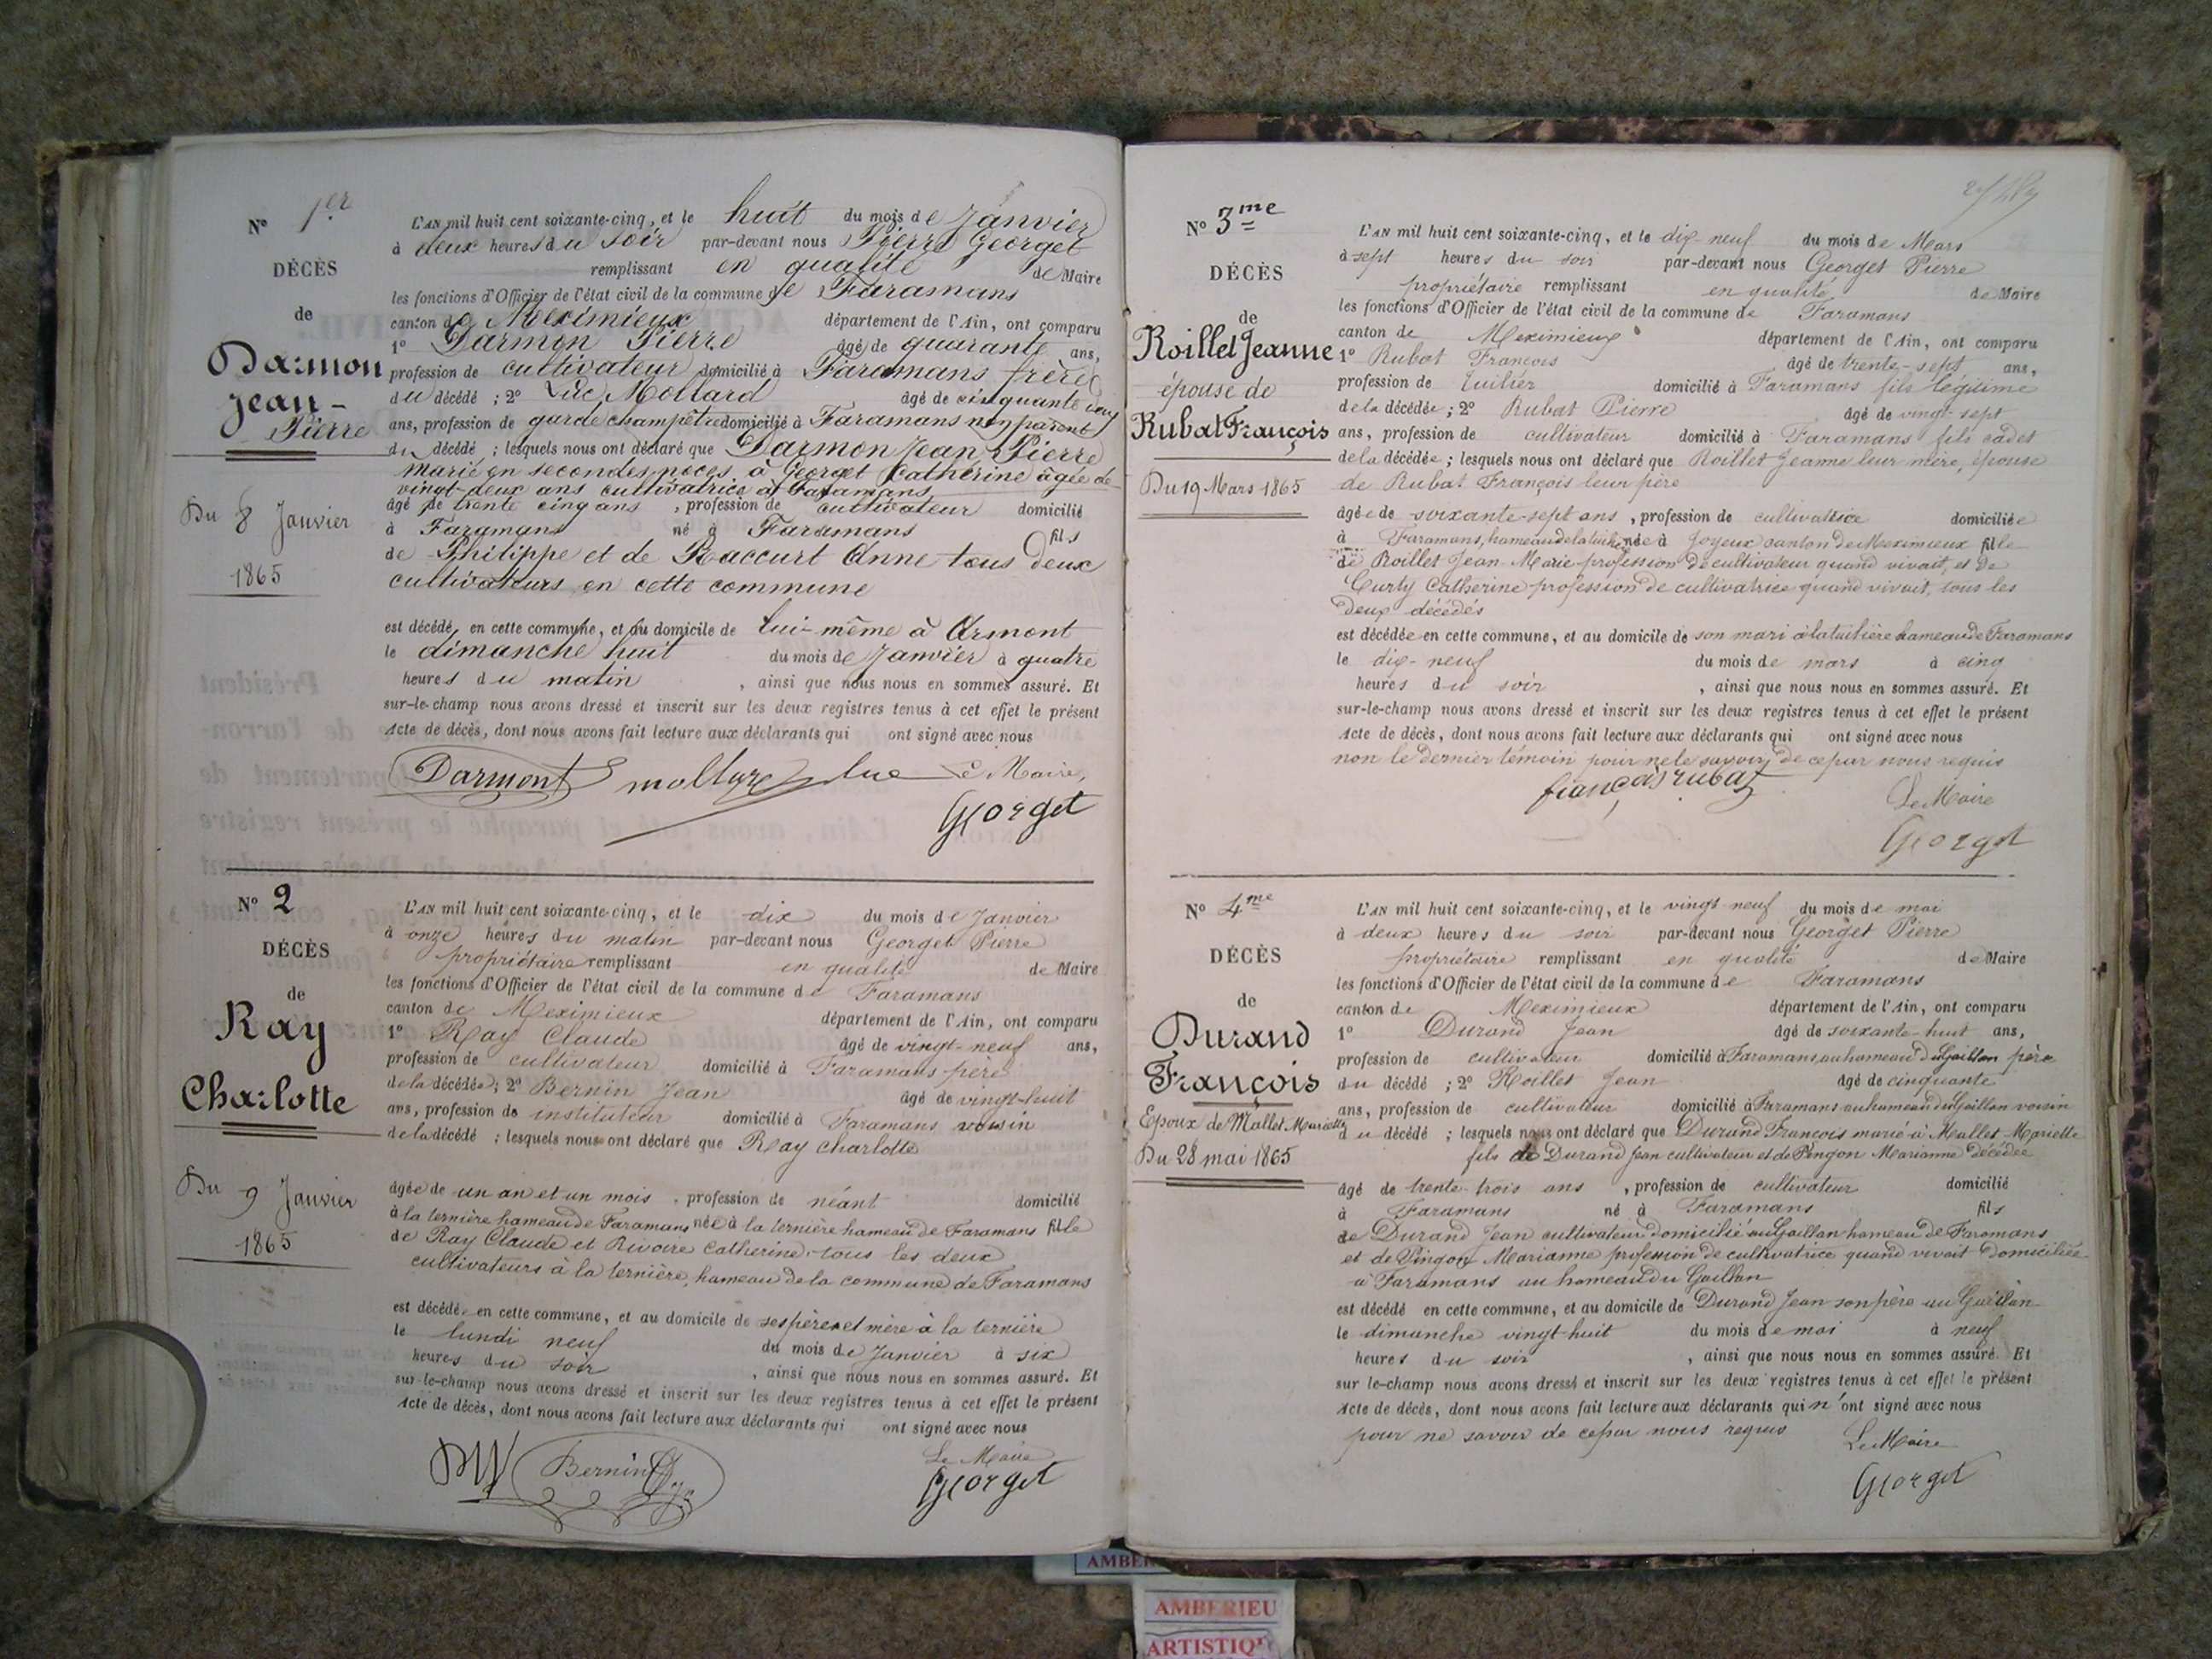 N° 1er
DÉCÈS
de
Darmon
Jean-
Pierre
Du 8 Janvier
1865
L'AN mil huit cent soixante-cinq, et le huit du mois de Janvier
à deux heures du soir par-devant nous Pierre Georget
remplissant en qualité de Maire
les fonctions d'Officier de l'état civil de la commune de Faramans
canton de Meximieux département de l'Ain, ont comparu
1° Darmon Pierre âgé de quarante ans,
profession de cultivateur domicilié à Faramans frère
du décédé ; 2° Luc Mollard âgé de cinquante cinq
ans, profession de garde champêtre domicilié à Faramans non parent
du décédé ; lesquels nous ont déclaré que Darmon Jean Pierre
marié en secondes noces à Georget Catherine âgée de
vingt-deux ans cultivatrice à Faramans
âgé de trente cinq ans, profession de cultivateur domicilié
à Faramans né à Faramans fils
de Philippe et de Raccurt Anne tous deux
cultivateurs en cette commune
est décédé, en cette commune, et au domicile de lui-même à Armont
le dimanche huit du mois de Janvier à quatre
heures du matin, ainsi que nous nous en sommes assuré. Et
sur-le-champ nous avons dressé et inscrit sur les deux registres tenus à cet effet le présent
Acte de décès, dont nous avons fait lecture aux déclarants qui ont signé avec nous
Darmont mollard luc Le Maire,
Georget
N° 2
DÉCÈS
de
Ray
Charlotte
Du 9 Janvier
1865
L'AN mil huit cent soixante-cinq, et le dix du mois de Janvier
à onze heures du matin par-devant nous Georget Pierre
propriétaire remplissant en qualité de Maire
les fonctions d'Officier de l'état civil de la commune de Faramans
canton de Meximieux département de l'Ain, ont comparu
1° Ray Claude âgé de vingt-neuf ans,
profession de cultivateur domicilié à Faramans père
de la décédée ; 2° Bernin Jean âgé de vingt-huit
ans, profession de instituteur domicilié à Faramans voisin
de la décédé ; lesquels nous ont déclaré que Ray Charlotte
âgée de un an et un mois, profession de néant domicilié
à la ternière hameau de Faramans née à la ternière hameau de Faramans fille
de Ray Claude et Rivoire Catherine, tous les deux
cultivateurs à la ternière, hameau de la commune de Faramans
est décédée en cette commune, et au domicile de ses père et mère à la ternière
le lundi neuf du mois de Janvier à six
heures du soir, ainsi que nous nous en sommes assuré. Et
sur-le-champ nous avons dressé et inscrit sur les deux registres tenus à cet effet le présent
Acte de décès, dont nous avons fait lecture aux déclarants qui ont signé avec nous
Bernin Le Maire
Georget
N° 3me
DÉCÈS
de
Roillet Jeanne
épouse de
Rubat François
Du 19 Mars 1865
L'AN mil huit cent soixante-cinq, et le dix-neuf du mois de Mars
à sept heures du soir par-devant nous Georget Pierre
propriétaire remplissant en qualité de Maire
les fonctions d'Officier de l'état civil de la commune de Faramans
canton de Meximieux département de l'Ain, ont comparu
1° Rubat François âgé de trente-sept ans,
profession de tuilier domicilié à Faramans fils légitime
de la décédée ; 2° Rubat Pierre âgé de vingt-sept
ans, profession de cultivateur domicilié à Faramans fils cadet
de la décédée ; lesquels nous ont déclaré que Roillet Jeanne leur mère, épouse
de Rubat François leur père
âgée de soixante-sept ans, profession de cultivatrice domiciliée
à Faramans, hameau de la née à Joyeux canton de Meximieux fille
de Roillet Jean Marie profession de cultivateur quand vivait, et de
Curty Catherine profession de cultivatrice quand vivait, tous les
deux décédés
est décédée en cette commune, et au domicile de son mari à la tuilière hameau de Faramans
le dix-neuf du mois de mars à cinq
heures du soir, ainsi que nous nous en sommes assuré. Et
sur-le-champ nous avons dressé et inscrit sur les deux registres tenus à cet effet le présent
Acte de décès, dont nous avons fait lecture aux déclarants qui ont signé avec nous
non le dernier témoin pour ne le savoir, de ce par nous requis
françois rubat Le Maire
Georget
N° 4me
DÉCÈS
de
Durand
François
Epoux de Mallet Mariette
Du 28 mai 1865
L'AN mil huit cent soixante-cinq, et le vingt-neuf du mois de mai
à deux heures du soir par-devant nous Georget Pierre
propriétaire remplissant en qualité de Maire
les fonctions d'Officier de l'état civil de la commune de Faramans
canton de Meximieux département de l'Ain, ont comparu
1° Durand Jean âgé de soixante-huit ans,
profession de cultivateur domicilié à Faramans, au hameau du Gaillon père
du décédé ; 2° Roillet Jean âgé de cinquante
ans, profession de cultivateur domicilié à Faramans au hameau du Gaillon voisin
du décédé ; lesquels nous ont déclaré que Durand François marié à Mallet Mariette
fils de Durand Jean cultivateur et de Pingon Marianne décédée
âgé de trente-trois ans, profession de cultivateur domicilié
à Faramans né à Faramans fils
de Durand Jean cultivateur domicilié au Gaillon hameau de Faramans
et de Pingon Marianne profession de cultivatrice quand vivait domiciliée
à Faramans au hameau du Gaillon
est décédé en cette commune, et au domicile de Durand Jean son père au Gaillon
le dimanche vingt-huit du mois de mai à neuf
heures du soir, ainsi que nous nous en sommes assuré. Et
sur le-champ nous avons dressé et inscrit sur les deux registres tenus à cet effet le présent
Acte de décès, dont nous avons fait lecture aux déclarants qui n'ont signé avec nous
pour ne savoir de ce par nous requis Le Maire
Georget
AMBERIEU
ARTISTIQ